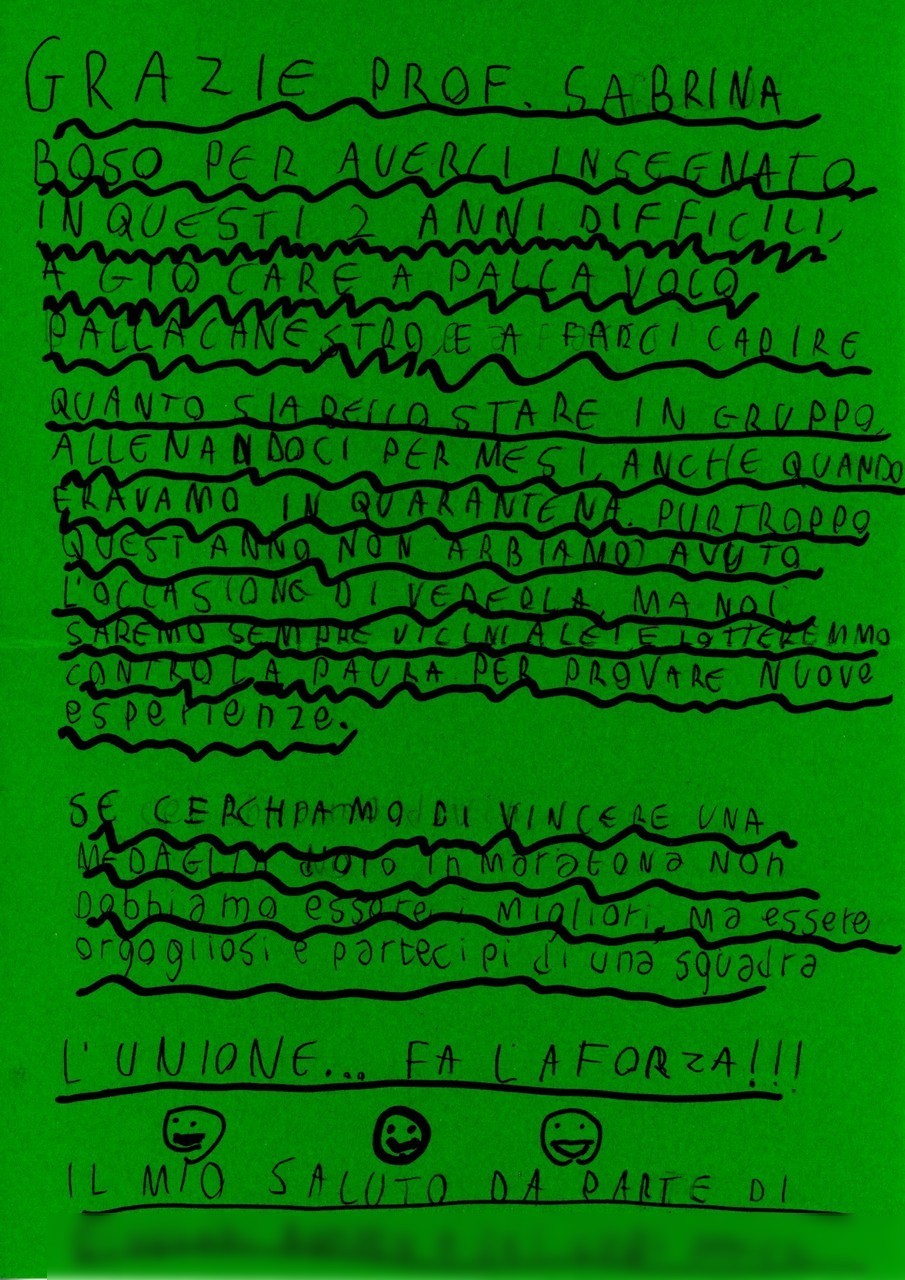 GRAZIE PROF. SABRINA
BOSO PER AVERCI INSEGNATO
IN QUESTI 2 ANNI DIFFICILI,
A GIOCARE A PALLA VOLO
PALLACANESTRO E A FARCI CAPIRE
QUANTO SIA BELLO STARE IN GRUPPO,
ALLENANDOCI PER MESI, ANCHE QUANDO
ERAVAMO IN QUARANTENA. PURTROPPO
QUEST ANNO NON ABBIAMO AVUTO
L'OCCASIONE DI VEDERLA, MA NOI
SAREMO SEMPRE VICINI A LEI E LOTTEREMMO
CONTRO LA PAURA PER PROVARE NUOVE
esperienze.
SE CERCHIAMO DI VINCERE UNA
MEDAGLIA d'oro in maratona Non
Dobbiamo essere i Migliori, ma essere
orgogliosi e partecipi di una squadra
L'UNIONE... FA LA FORZA!!!
IL MIO SALUTO DA PARTE DI